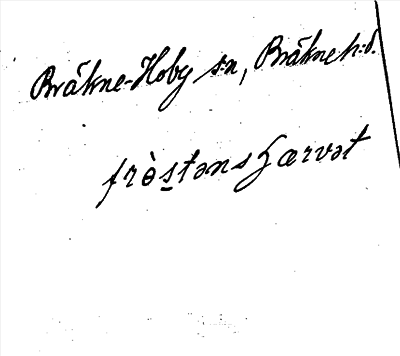 Bräkne-Hoby sn, Bräkne hd.
frɵ̀s̱tənsʒærvət